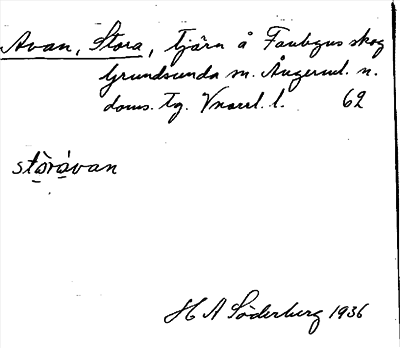 Avan, Stora, tjärn å Faubgus skog
Grundsunda sn. Ångerml. n.
doms. Tg. Vnorrl. l. 62
stòrávan
H A Söderberg 1936